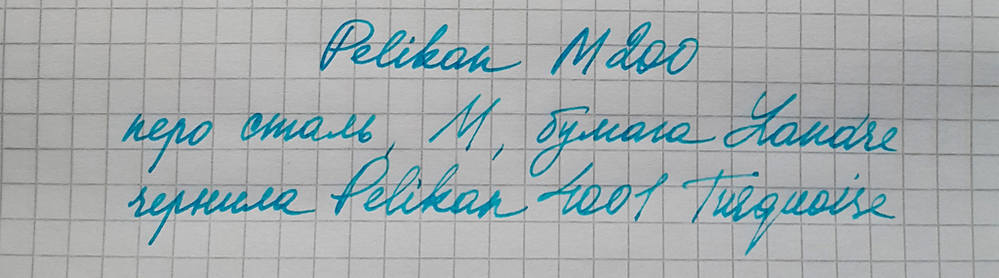 Pelikan M200
перо сталь, M, бумага Landre
чернила Pelikan 4001 Turquoise